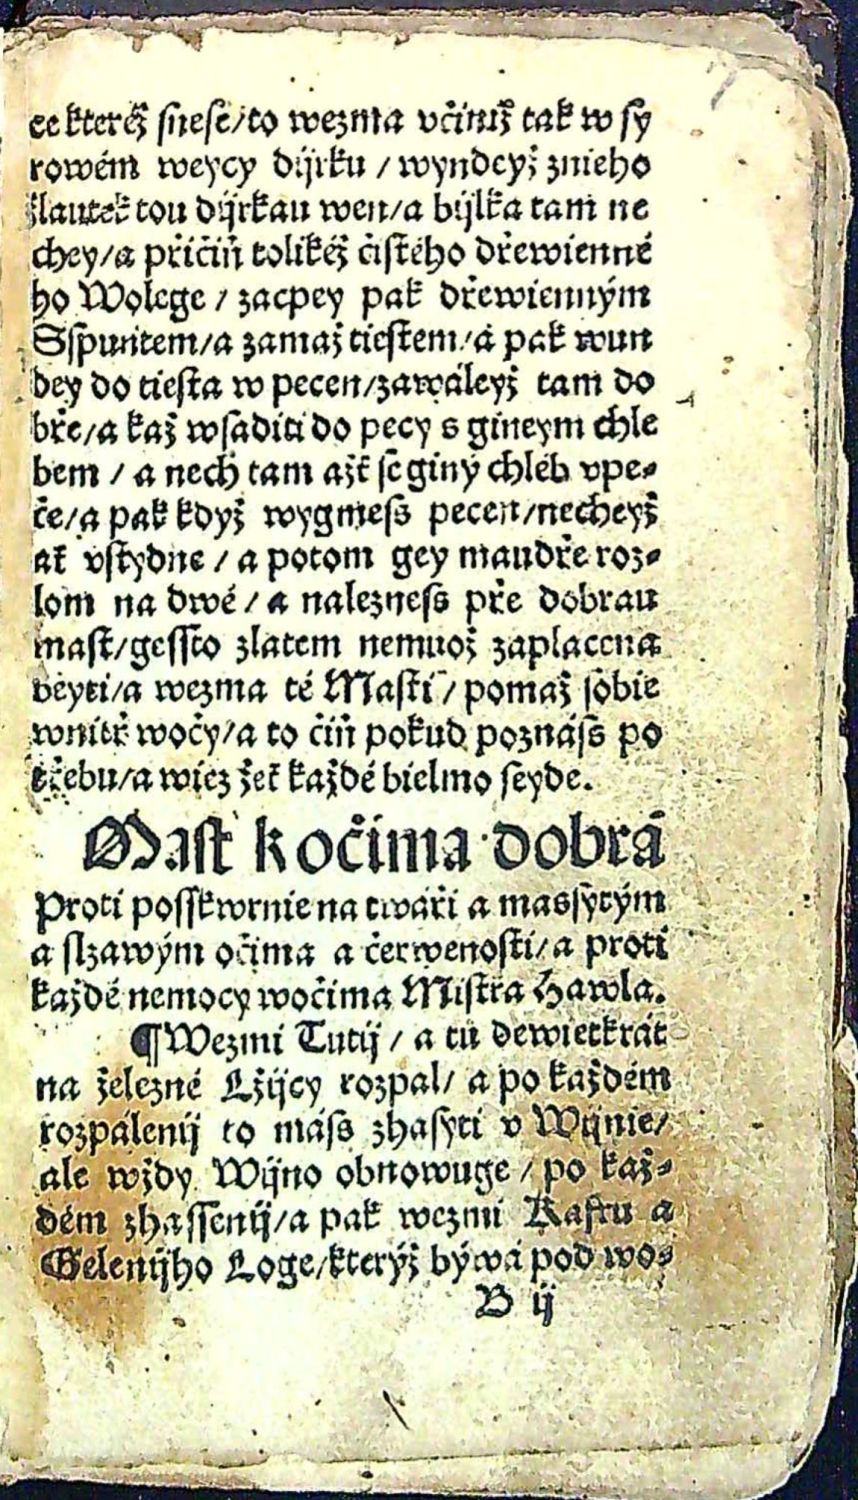 ce kteréž snese/to wezma včiniž tak w sy
rowém weycy dijrku / wyndeyž znieho
žlautek tou dijrkau wen/a bijlka tam ne
chey/a přičiň tolikéž čistého dřewienné
ho Wolege / zacpey pak dřewienným
Sspuntem/a zamaž tiestem/a pak wun
dey do tiesta w pecen/zawáleyž tam do
bře/a kaž wsaditi do pecy s gineym chle
bem / a nech tam ažť se giný chléb vpe⸗
če/a pak když wygmess pecen/necheyž
ať vstydne / a potom gey maudře roz⸗
lom na dwé / a nalezness pře dobrau
mast/gessto zlatem nemuož zaplacena
beyti/a wezma té Masti / pomaž sobie
wnitř wočy/a to čiň pokud poznáss po
třebu/a wiez žeť každé bielmo seyde.
Mast k očima dobrá
Proti posskwrnie na twáři a massytým
a slzawým očima a čerwenosti/a proti
každé nemocy wočima Mistra Hawla.
¶Wezmi Tutij / a tu dewietkrát
na železné Lžijcy rozpal/ a po každém
rozpálenij to máss zhasyti v Wijnie/
ale wždy Wijno obnowuge / po kaž⸗
dém zhassenij/a pak wezmi Kafru a
Gelenijho Loge/kterýž býwá pod wo⸗
B ij